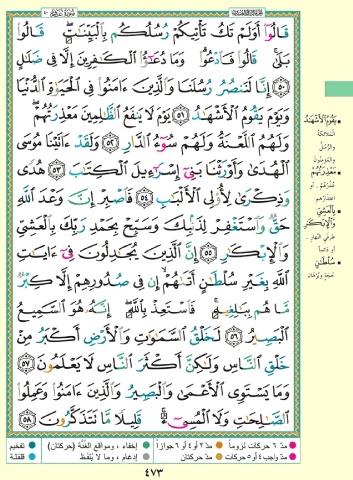 قَالُوٓا۟ أَوَلَمْ تَكُ تَأْتِيكُمْ رُسُلُكُم بِٱلْبَيِّنَـٰتِ ۖ قَالُوا۟
بَلَىٰ ۚ قَالُوا۟ فَٱدْعُوا۟ ۗ وَمَا دُعَـٰٓؤُا۟ ٱلْكَـٰفِرِينَ إِلَّا فِى ضَلَـٰلٍ
٥٠ إِنَّا لَنَنصُرُ رُسُلَنَا وَٱلَّذِينَ ءَامَنُوا۟ فِى ٱلْحَيَوٰةِ ٱلدُّنْيَا
وَيَوْمَ يَقُومُ ٱلْأَشْهَـٰدُ ٥١ يَوْمَ لَا يَنفَعُ ٱلظَّـٰلِمِينَ مَعْذِرَتُهُمْ ۖ
وَلَهُمُ ٱللَّعْنَةُ وَلَهُمْ سُوٓءُ ٱلدَّارِ ٥٢ وَلَقَدْ ءَاتَيْنَا مُوسَى
ٱلْهُدَىٰ وَأَوْرَثْنَا بَنِىٓ إِسْرَٰٓءِيلَ ٱلْكِتَـٰبَ ٥٣ هُدًى
وَذِكْرَىٰ لِأُو۟لِى ٱلْأَلْبَـٰبِ ٥٤ فَٱصْبِرْ إِنَّ وَعْدَ ٱللَّهِ
حَقٌّ وَٱسْتَغْفِرْ لِذَنۢبِكَ وَسَبِّحْ بِحَمْدِ رَبِّكَ بِٱلْعَشِىِّ
وَٱلْإِبْكَـٰرِ ٥٥ إِنَّ ٱلَّذِينَ يُجَـٰدِلُونَ فِىٓ ءَايَـٰتِ
ٱللَّهِ بِغَيْرِ سُلْطَـٰنٍ أَتَىٰهُمْ ۙ إِن فِى صُدُورِهِمْ إِلَّا كِبْرٌ
مَّا هُم بِبَـٰلِغِيهِ ۚ فَٱسْتَعِذْ بِٱللَّهِ ۖ إِنَّهُۥ هُوَ ٱلسَّمِيعُ
ٱلْبَصِيرُ ٥٦ لَخَلْقُ ٱلسَّمَـٰوَٰتِ وَٱلْأَرْضِ أَكْبَرُ مِنْ
خَلْقِ ٱلنَّاسِ وَلَـٰكِنَّ أَكْثَرَ ٱلنَّاسِ لَا يَعْلَمُونَ ٥٧
وَمَا يَسْتَوِى ٱلْأَعْمَىٰ وَٱلْبَصِيرُ وَٱلَّذِينَ ءَامَنُوا۟ وَعَمِلُوا۟
ٱلصَّـٰلِحَـٰتِ وَلَا ٱلْمُسِىٓءُ ۚ قَلِيلًا مَّا تَتَذَكَّرُونَ ٥٨
يَقُومُ الأشْهَادُ
الملائكة
والرسل
والمؤمنون
مَعْذِرَتُهُمْ
عذرهم، أو
اعتذارهم
بِالعَشِيِّ
وَالإبْكَارِ
طرفي النهار
أو دائماً
سُلْطَانٍ
حجة وبرهان
مدّ ٦ حركات لزوماً
مدّ ٢ أو ٤ أو ٦ جوازاً
إخفاء، ومواقع الغنّة (حركتان)
تفخيم
مدّ واجب ٤ أو ٥ حركات
مدّ حركتان
إدغام، وما لا يُلفظ
قلقلة
٤٧٣